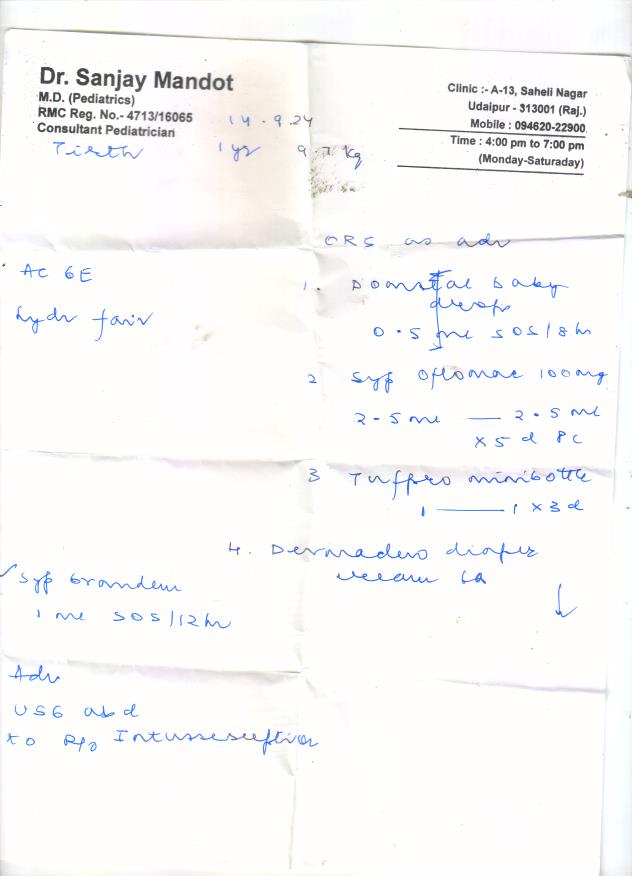 Dr. Sanjay Mandot
M.D. (Pediatrics)
RMC Reg. No.- 4713/16065
Consultant Pediatrician
Clinic :- A-13, Saheli Nagar
Udaipur - 313001 (Raj.)
Mobile : 094620-22900
Time : 4:00 pm to 7:00 pm
(Monday-Saturaday)
14.9.24
Tirth 1 yr 9.7 kg
ORS as adv
AC GE
hydr fair
1. Domstal baby
drops
0.5 ml SOS/8 hr
2 Syp Oflomac 100mg
2.5 ml — 2.5 ml
x 5 d PC
3 Tuffpro minibottle
1 — 1 x 3 d
4. Dermadew diaper
cream LA
Syp Grandem
1 ml SOS/12 hr
Adv
USG abd
to R/o Intussusception